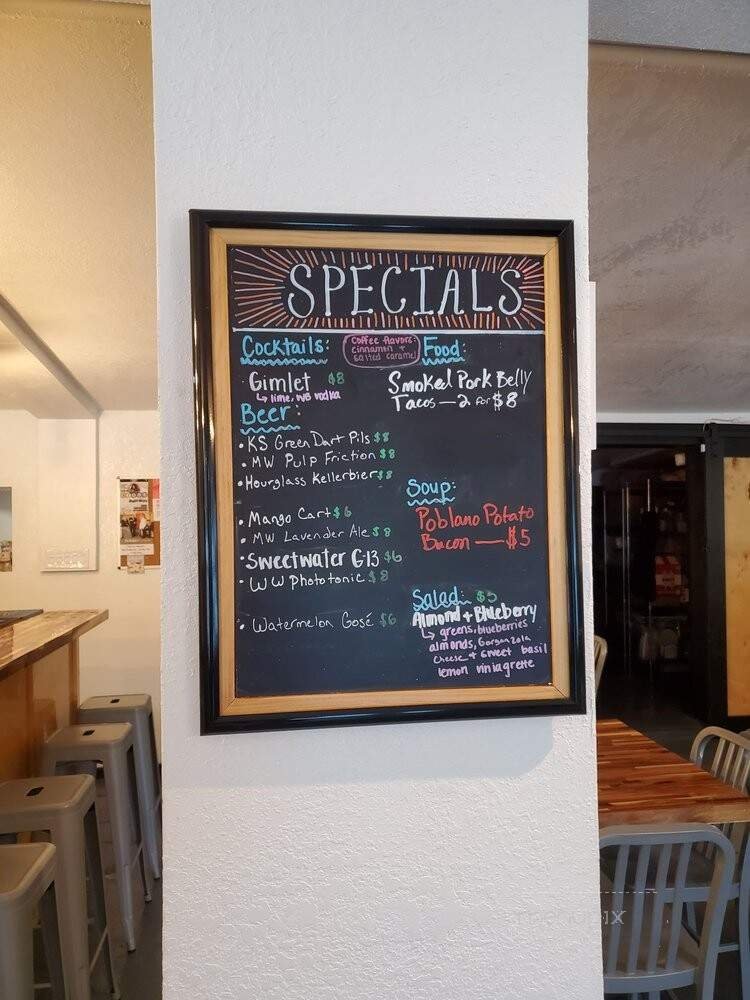 SPECIALS
Cocktails:
Gimlet $8
↳ lime, WB vodka
Beer:
• KS Green Dart Pils $8
• MW Pulp Friction $8
• Hourglass Kellerbier $8
• Mango Cart $6
• MW Lavender Ale $8
• Sweetwater G13 $6
• WW Phototonic $8
• Watermelon Gosé $6
Coffee flavors:
cinnamon +
salted caramel
Food:
Smoked Pork Belly
Tacos — 2 for $8
Soup:
Poblano Potato
Bacon — $5
Salad: $5
Almond + Blueberry
↳ greens, blueberries
almonds, Gorgonzola
cheese + sweet basil
lemon viniagrette